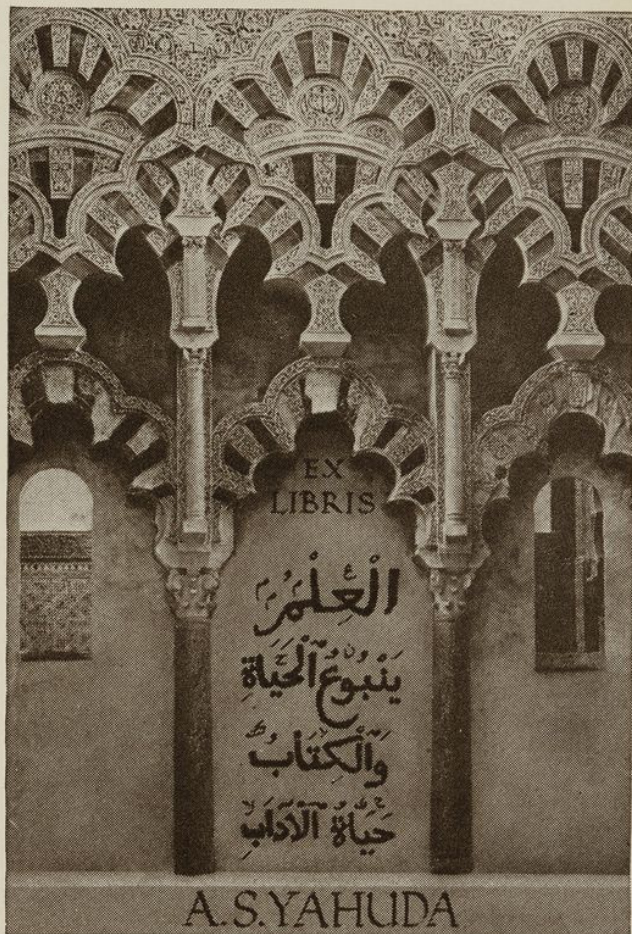 EX
LIBRIS
الْعِلْمُ
يَنْبُوعُ الْحَيَاةِ
وَالْكِتَابُ
حَيَاةُ الْآدَابِ
A.S. YAHUDA